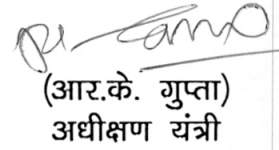 (आर.के. गुप्ता)
अधीक्षण यंत्री